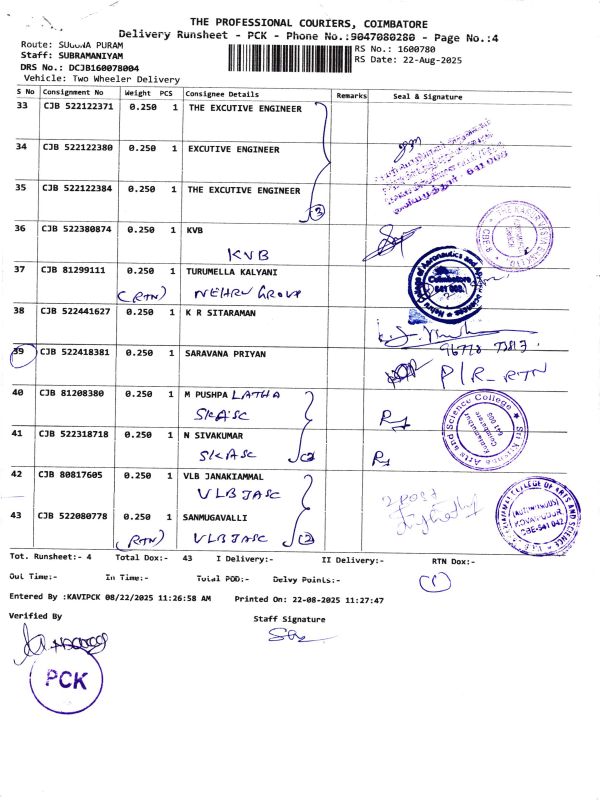 THE PROFESSIONAL COURIERS, COIMBATORE
Delivery Runsheet - PCK - Phone No.:9047080280 - Page No.:4
Route: SUGUNA PURAM
RS No.: 1600780
Staff: SUBRAMANIYAM
RS Date: 22-Aug-2025
DRS No.: DCJB160078004
Vehicle: Two Wheeler Delivery
S No Consignment No Weight PCS Consignee Details Remarks Seal & Signature
33 CJB 522122371 0.250 1 THE EXCUTIVE ENGINEER
34 CJB 522122380 0.250 1 EXCUTIVE ENGINEER
35 CJB 522122384 0.250 1 THE EXCUTIVE ENGINEER
(3)
36 CJB 522380874 0.250 1 KVB
KVB
37 CJB 81299111 0.250 1 TURUMELLA KALYANI
(RTN) NEHRU GROUP
38 CJB 522441627 0.250 1 K R SITARAMAN
39 CJB 522418381 0.250 1 SARAVANA PRIYAN
P/R_RTN
40 CJB 81208380 0.250 1 M PUSHPA LATHA
SKASC
41 CJB 522318718 0.250 1 N SIVAKUMAR
SKASC (2)
Sri Krishna Arts and Science College
Coimbatore
641 008
42 CJB 80817605 0.250 1 VLB JANAKIAMMAL
VLBJASC
2 post
43 CJB 522080778 0.250 1 SANMUGAVALLI
(RTN) VLBJASC (2)
(AUTONOMOUS)
KOVAIPUDUR
CBE-641 042
Tot. Runsheet:- 4 Total Dox:- 43 I Delivery:- II Delivery:- RTN Dox:-
(1)
Out Time:- In Time:- Total POD:- Delvy Points:-
Entered By :KAVIPCK 08/22/2025 11:26:58 AM Printed On: 22-08-2025 11:27:47
Verified By Staff Signature
PCK